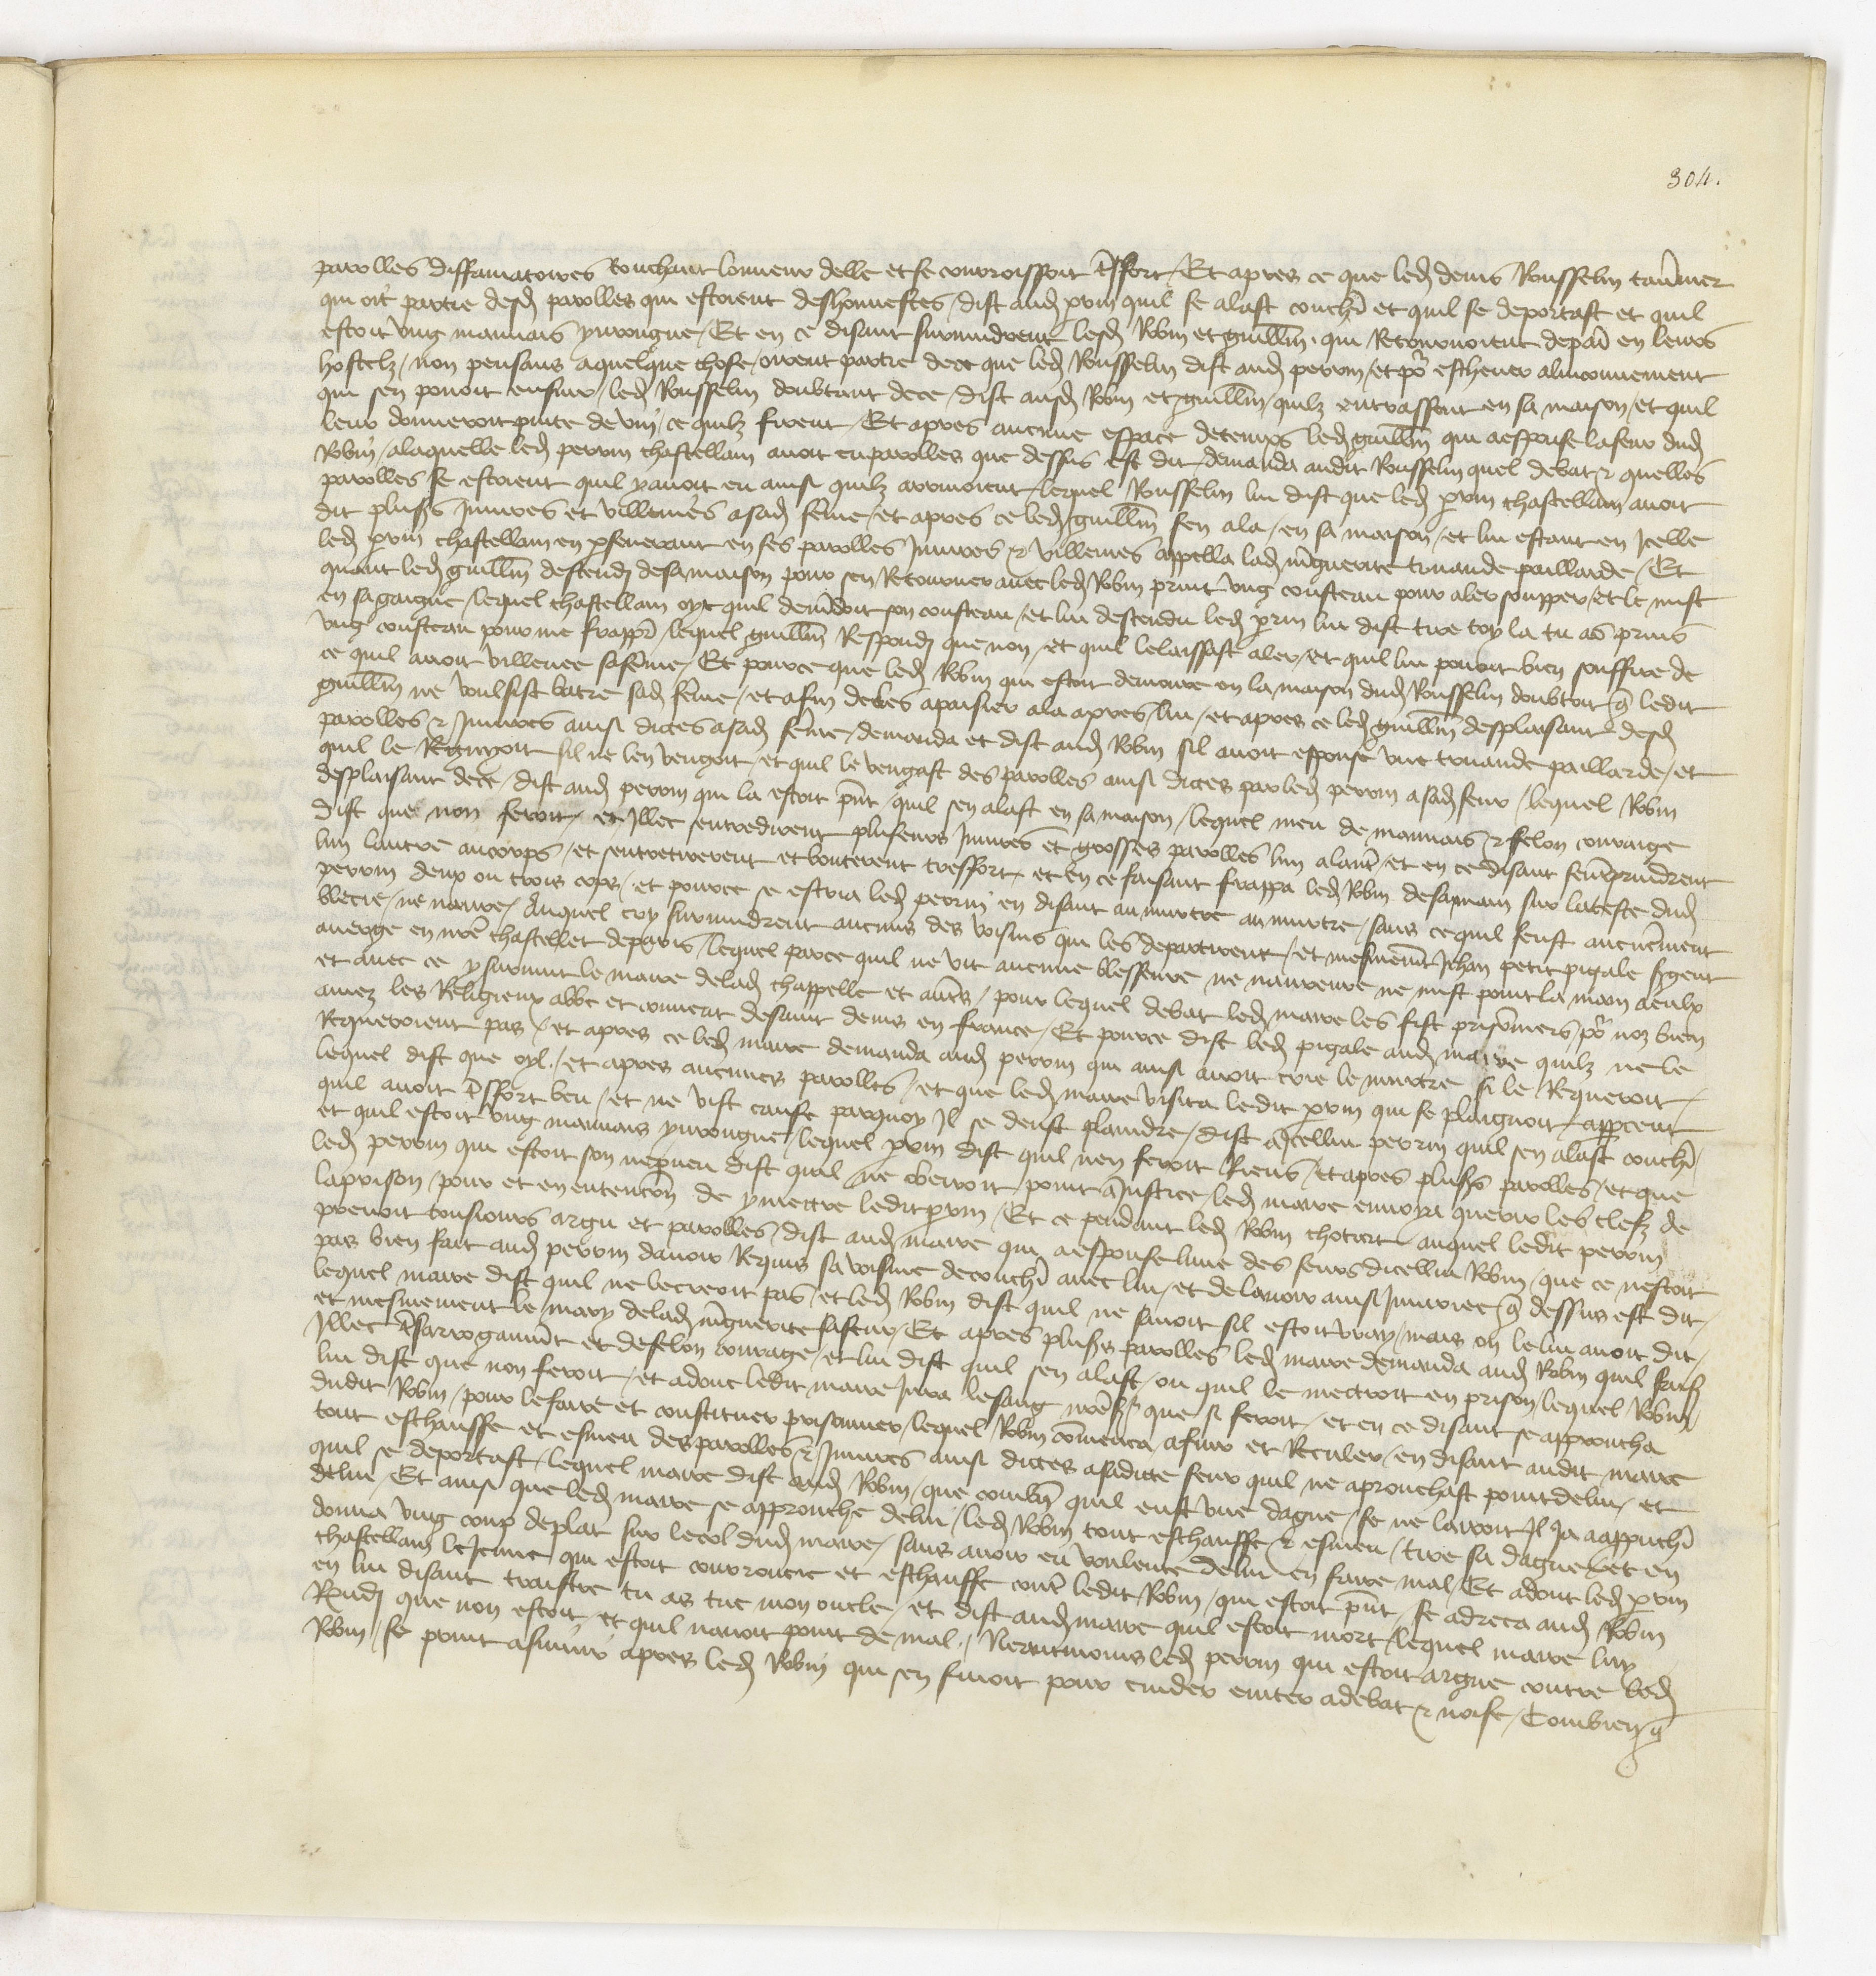 304.
parolles diffamatoires touchant lonneur delle et se courroissoit tresfort / Et apres ce que led denis Rousselin tavernier
qui oit partie desd parolles qui estoient deshonnestes / dist aud perrin quil se alast couchier et quil se deportast et quil
estoit ung mauvais yvrongne / Et en ce disant survindrent lesd Robin et guillemin qui Retournoient de paris en leurs
hostelz / non pensans a quelque chose / oirent partie de ce que led Rousselin dist aud perrin / et pour eschever a linconvenient
qui sen povoit ensuir / led Rousselin doubtant de ce / dist ausd Robin et guillemin / quilz entrassent en sa maison / et quil
leur donneroit pinte de vin / ce quilz firent / Et apres aucune espace de temps led guillemin qui a espouse la seur dud
Robin / a laquelle led perrin chastellain avoit eu parolles que dessus est dit / demanda audit Rousselin quel debat et quelles
parolles se estoient quil y avoit eu ainsi quilz arrivoient / lequel Rousselin lui dist que led perrin chastellain avoit
dit plusieurs Injures et villenies a sad femme / et apres ce led guillemin sen ala / en sa maison / et lui estant en Icelle
led perrin chastellain en perseverant en ses parolles Injures et villenies appella lad marguerite truande paillarde / Et
quant led guillemin descendi de sa maison pour sen Retourner avec led Robin print ung cousteau pour aler soupper / et le mist
en sa gaigne / lequel chastellain oyt quil demandoit son cousteau / et lui descendu led perrin lui dist tire toy la tu as prins
ung cousteau pour me frapper / lequel guillemin Respondi que non / et quil le laissast aler / et quil lui povoit bien souffire de
ce quil avoit villenee sa femme / Et pource que led Robin qui estoit demoure en la maison dud Rousselin doubtoit que ledit
guillemin ne voulsist batre sad femme / et afin de les apaisier ala apres lui / et apres ce led guillemin desplaisant desd
parolles et Injures ainsi dictes a sad femme / demanda et dist aud Robin sil avoit espouse une truande paillarde / et
quil le Regnyoit sil ne len vengoit / et quil le vengast des parolles ainsi dictes par led perrin a sad seur / lequel Robin
desplaisant de ce / dist aud perrin qui la estoit present / quil sen alast en sa maison / lequel meu de mauvais et felon couraige
dist que non feroit / et Illec sentredirent plusieurs Injures et grosses parolles lun a lautre / et en ce disant sentreprindrent
lun lautre au corps / et sentretirerent et bouterent tresfort / et en ce faisant frappa led Robin de sa main sur la teste dud
perrin deux ou trois cops / et pource se escria led perrin en disant au murtre au murtre / sans ce quil feust aucunement
blecie / ne navre / Auquel cry survindrent aucuns des voisins qui les departirent / et mesmement Jehan petit pigale sergent
a verge en nostre chastellet de paris / lequel parce quil ne vit aucune blesseure ne navreure ne mist point la main a eulx
et avec ce y survint le maire de lad chappelle et autres / pour lequel debat led maire les fist prisonniers / pour noz bien
amez les Religieux abbe et convent de saint denis en france / Et pource dist led pigale aud maire quilz ne le
Requeroient pas / et apres ce led maire demanda aud perrin qui ainsi avoit crie le murtre si le Requeroit /
lequel dist que oyl / et apres aucunes parolles / et que led maire visita ledit perrin qui se plaignoit apperceut
quil avoit tresfort beu / et ne vist cause parquoy Il se deust plaindre / dist a Icellui perrin quil sen alast couchier
et quil estoit ung mauvais yvrongne / lequel perrin dist quil nen feroit Riens / et apres plusieurs parolles / et que
led perrin qui estoit son nepveu dist quil ne obeiroit point a Justice / led maire envoya querir les clefz de
la prison / pour et en entencion de y mectre ledit perrin / Et ce pendant led Robin chotart auquel ledit perrin
prenoit tousiours argu et parolles / dist aud maire qui a espouse lune des seurs dicellui Robin / que ce nestoit
pas bien fait aud perrin davoir Requis sa voisine de couchier avec lui / et de lavoir ainsi Injuriee que dessus est dit /
lequel maire dist quil ne le creroit pas / et led Robin dist quil ne savoit sil estoit vray / mais on le lui avoit dit /
et mesmement le mary de lad marguerite sa seur / Et apres plusieurs parolles led maire demanda aud Robin quil faisoit
Illec tresarrogaument et de felon courage / et lui dist quil sen alast / ou quil le mectroit en prison / lequel Robin
lui dist que non feroit / et adonc ledit maire Jura le sang nostre seigneur que si feroit / et en ce disant se approucha
dudit Robin / pour le faire et constituer prisonnier / lequel Robin commenca a fuir et Reculer / en disant audit maire
tout eschauffe et esmeu des parolles et Injures ainsi dictes a sadicte seur quil ne aprouchast point de lui / et
quil se deportast / lequel maire dist aud Robin / que combien quil eust une dague / se ne lairoit Il Ja a approuchier
de lui / Et ainsi que led maire se approuche de lui / led Robin tout eschauffe et esmeu / tire sa dague et en
donna ung coup de plat sur le col dud maire / sans avoir eu voulente de lui en faire mal / Et adonc led perrin
chastellain le Jeune qui estoit courroucie et eschauffe contre ledit Robin / qui estoit present / se adreca aud Robin
en lui disant traistre tu as tue mon oncle / et dist aud maire quil estoit mort / lequel maire luy
Rendi que non estoit et quil navoit point de mal / Neantmoins led perrin qui estoit argue contre led
Robin / se print a suivir apres led Robin qui sen fuioit pour cuider eviter a debat et noise / Combien que